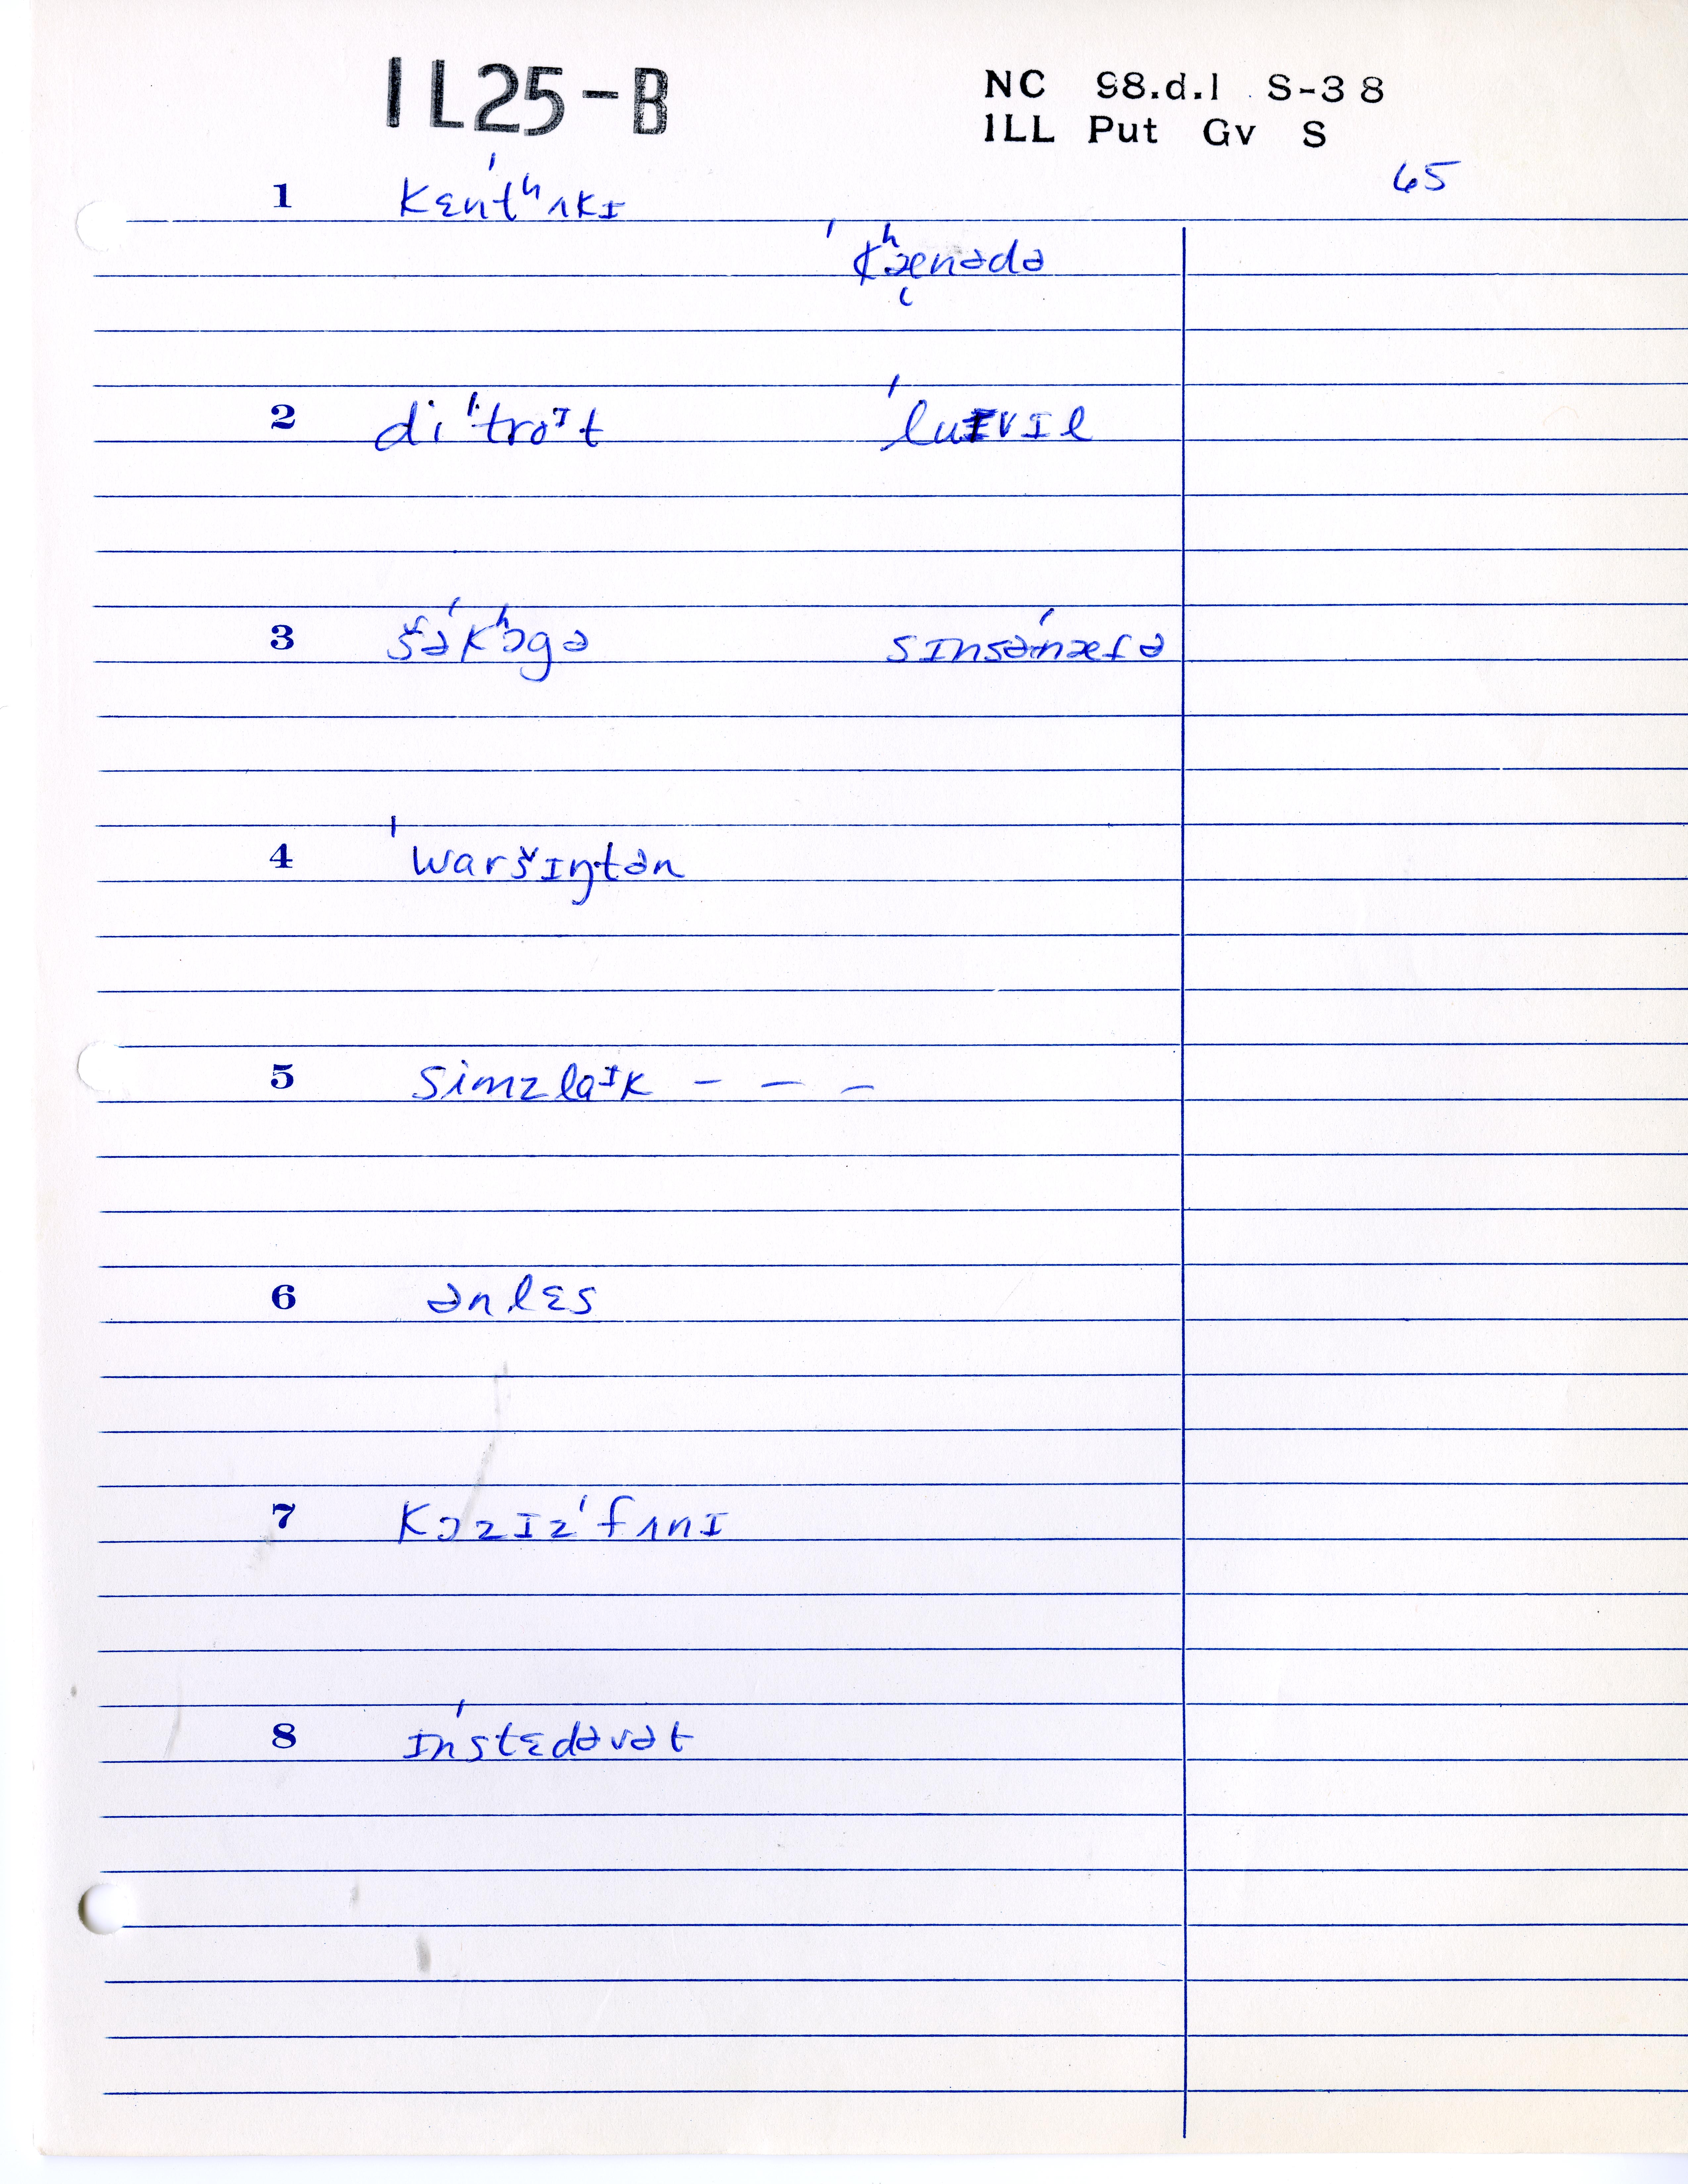 IL25-B
NC 98.d.1 S-38
ILL Put Gv S
65
1 kɛn'tʰʌkɪ
'kʰænədə
2 di'trɔᶦt 'luɪvɪl
3 šə'kʰɔgə sɪnsə'næfə
4 'waršɪŋtən
5 simzlaᶦk – – –
6 ənlɛs
7 kɔzɪz'fʌnɪ
8 ɪn'stɛdəvət